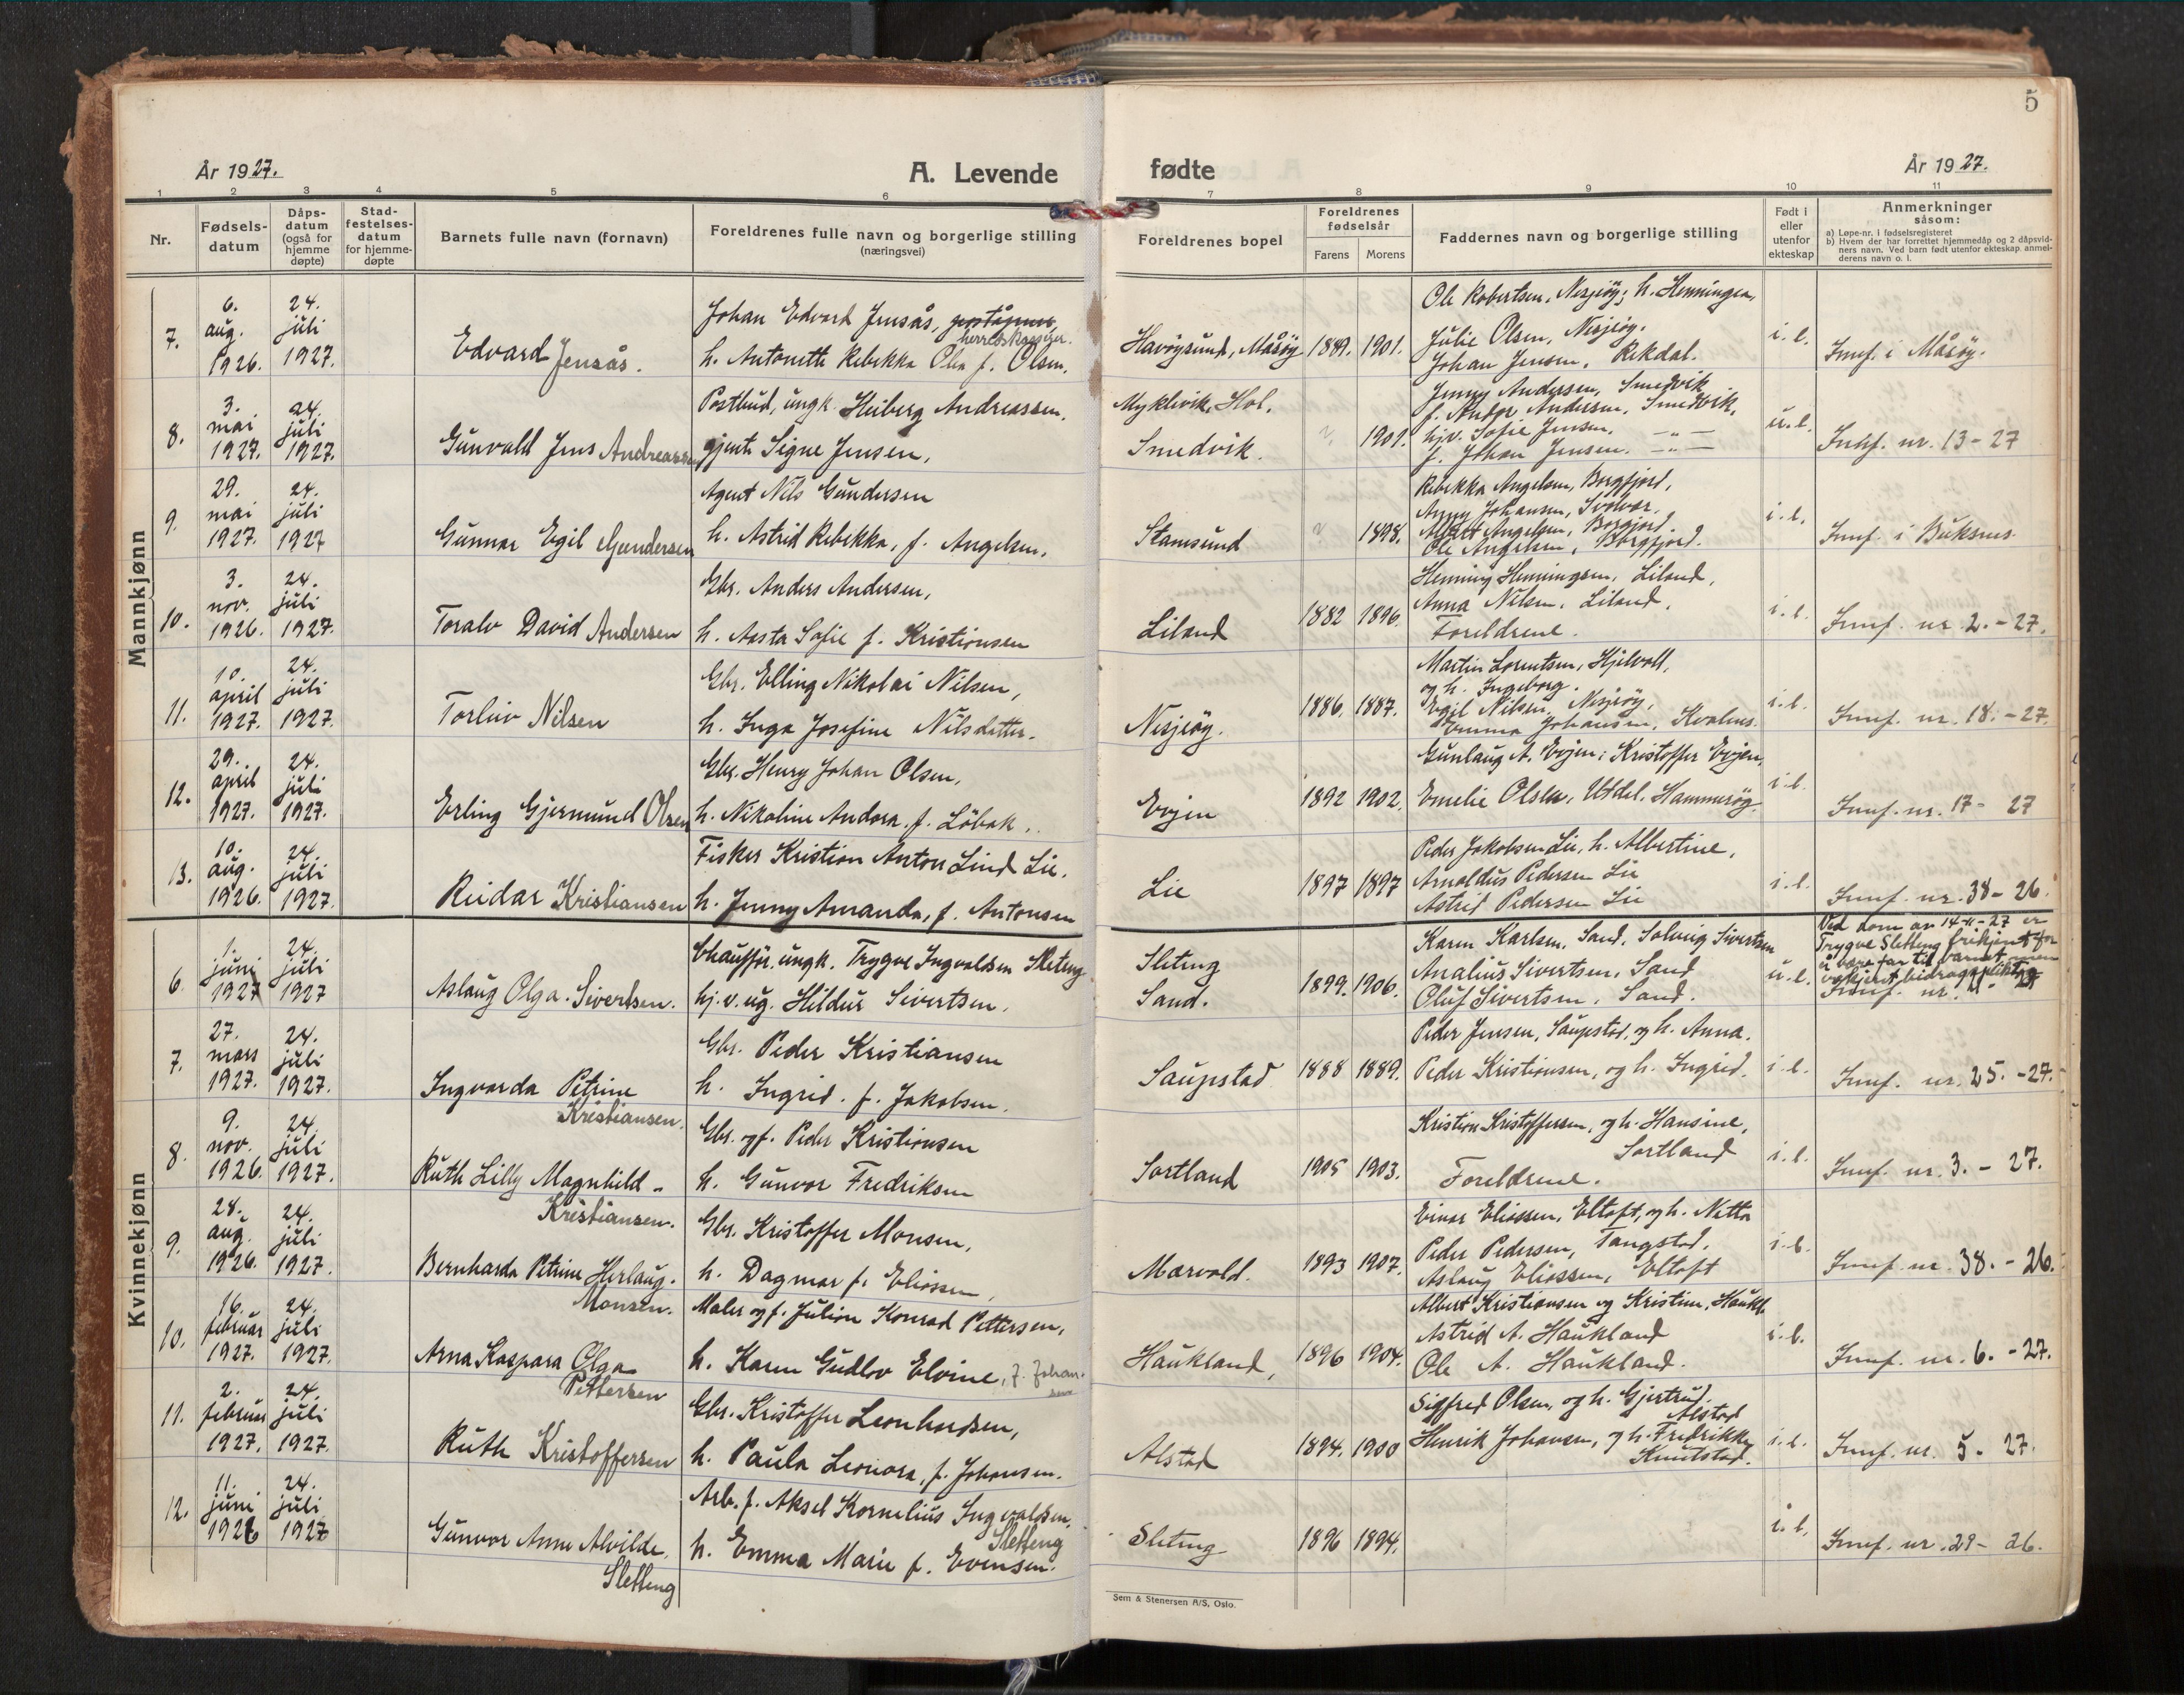 5
År 1927.
A. Levende fødte
År 1927.
1 2 3 4 5 6 7 8 9 10 11
Nr.
Fødsels-
datum
Dåps-
datum
(også for
hjemme
døpte)
Stad-
festelses-
datum
for hjemme-
døpte
Barnets fulle navn (fornavn)
Foreldrenes fulle navn og borgerlige stilling
(næringsvei)
Foreldrenes bopel
Foreldrenes
fødselsår
Farens Morens
Faddernes navn og borgerlige stilling
Født i
eller
utenfor
ekteskap
Anmerkninger
såsom:
a) Løpe-nr. i fødselsregisteret
b) Hvem der har forrettet hjemmedåp og 2 dåpsvid-
ners navn. Ved barn født utenfor ekteskap anmel-
derens navn o. l.
Mannkjønn
7.
6.
aug.
1926.
24.
juli
1927.
Edvard Jensås.
Johan Edvard Jensås,
herredskasserer.
h. Antonette Rebekka Olea f. Olsen.
Havöysund, Måsöy
1889. 1901.
Ole Robertsen, Nesjeöy; h. Henningea,
Julie Olsen, Nesjeöy.
Johan Jensen, Rekdal.
i.e.
Innf. i Måsöy.
8.
3.
mai
1927.
24.
juli
1927.
Gunvald Jens Andreassen
Postbud, ungk. Heiberg Andreassen.
gjente Signe Jensen,
Myklevik, Hol.
Smedvik.
? 1901.
Jenny Andersen, Smedvik
f. Andor Andersen, Smedvik,
hjv. Sofie Jensen. —"—
f. Johan Jensen. —"—
u.e.
Innf. nr. 13-27
9.
29.
mai
1927.
24.
juli
1927
Gunnar Egil Gundersen
Agent Nils Gundersen
h. Astrid Rebekka, f. Angelsen.
Stamsund
? 1898.
Rebekka Angelsen, Borgfjord,
Anny Johansen, Svolvær.
Albert Angelsen, Borgfjord.
Ole Angelsen, Borgfjord.
i.e.
Innf. i Buksnes.
10.
3.
nov.
1926.
24.
juli
1927.
Toralv David Andersen
Gbr. Anders Andersen,
h. Aasta Sofie f. Kristiansen
Liland
1882 1896.
Henning Henningsen, Liland,
Anna Nilsen, Liland.
Foreldrene.
i.e.
Innf. nr. 2.-27.
11.
10.
april
1927.
24.
juli
1927.
Torleiv Nilsen
Gbr. Elling Nikolai Nilsen,
h. Inga Josefine Nilsdatter.
Nesjeöy.
1886. 1887.
Martin Lorentsen, Hjelvoll,
og h. Ingeborg.
Egil Nilsen, Nesjeöy,
Emma Johansen, Kvalnes.
i.e.
Innf. nr. 18.-27.
12.
29.
april
1927.
24.
juli
1927.
Erling Gjermund Olsen
Gbr. Henry Johan Olsen,
h. Nikoline Andora f. Löbak.
Evjen
1892 1902.
Gunlaug A. Evjen; Kristoffer Evjen,
Emelie Olsen, Utdel. Hammeröy.
i.e.
Innf. nr. 17- 27
13.
10.
aug.
1926.
24.
juli
1927.
Reidar Kristiansen
Fisker Kristian Anton Lind Lie.
h. Jenny Amanda, f. Antonsen
Lie
1897 1897
Peder Jakobsen Lie, h. Albertine,
Arnoldus Pedersen Lie
Astrid Pedersen Lie
i.e.
Innf. nr. 38-26.
Kvinnekjønn
6.
1.
juni
1927
24.
juli
1927
Aslaug Olga. Sivertsen.
Chauffør, ungk. Trygve Ingvaldsen Sleteng
hj.v. ug. Hildur Sivertsen.
Sleteng
Sand.
1899. 1906.
Karen Karlsen, Sand, Solveig Sivertsen
Analius Sivertsen, Sand
Oluf Sivertsen, Sand.
u.e.
Ved dom av 14-11-27 er
Trygve Sletteng frikjent for
å være far til barnet, men
bidragspliktig
Innf. nr.
7.
27.
mars
1927.
24.
juli
1927.
Ingvarda Petrine
Kristiansen.
Gbr. Peder Kristiansen
h. Ingrid. f. Jakobsen.
Saupstad
1888 1889.
Peder Jensen, Saupstad, og h. Anna.
Peder Kristiansen, og h. Ingrid.
i.e.
Innf. nr. 25.-27.
8.
9.
nov.
1926.
24.
juli
1927.
Ruth Lilly Magnhild -
Kristiansen.
Gbr. og f. Peder Kristiansen
h. Gunvor Fredriksen
Sortland
1905 1903.
Kristian Kristoffersen, og h. Hansine,
Sortland
Foreldrene.
i.e.
Innf. nr. 3. - 27.
9.
28.
aug.
1926.
24.
juli
1927.
Bernharda Petrine Herlaug.
Monsen.
Gbr. Kristoffer Monsen,
h. Dagmar f. Eliassen,
Mærvold.
1893 1907.
Einar Eliassen, Eltoft, og h. Netta
Peder Pedersen, Tangstad,
Aslaug Eliassen, Eltoft
i.e.
Innf. nr. 38. - 26.
10.
16.
februar
1927.
24.
juli
1927.
Arna Kaspara Olga
Pettersen
Maler og f. Julian Konrad Pettersen,
h. Karen Gudlov Elvine, f. Johan-
sen
Haukland,
1896 1904.
Albert Kristiansen og Kristine, Haukl.
Astrid A. Haukland
Ole A. Haukland.
i.e.
Innf. nr. 6. - 27.
11.
2.
februar
1927.
24.
juli
1927.
Ruth Kristoffersen
Gbr. Kristoffer Leonhardsen,
h. Paula Leonora, f. Johansen.
Alstad
1894. 1900
Sigfred Olsen, og h. Gjertrud.
Alstad
Henrik Johansen, og h. Fredrikke
Knutstad.
i.e.
Innf. nr. 5- 27.
12.
11.
juni
1926
24.
juli
1927
Gunvor Anne Alvilde.
Sletteng
Arb. f. Aksel Kornelius Ingvaldsen,
Sletteng
h. Emma Marie f. Evensen.
Sleteng
1896 1894.
i.e.
Innf. nr. 29- 26.
Sem & Stenersen A/S, Oslo.